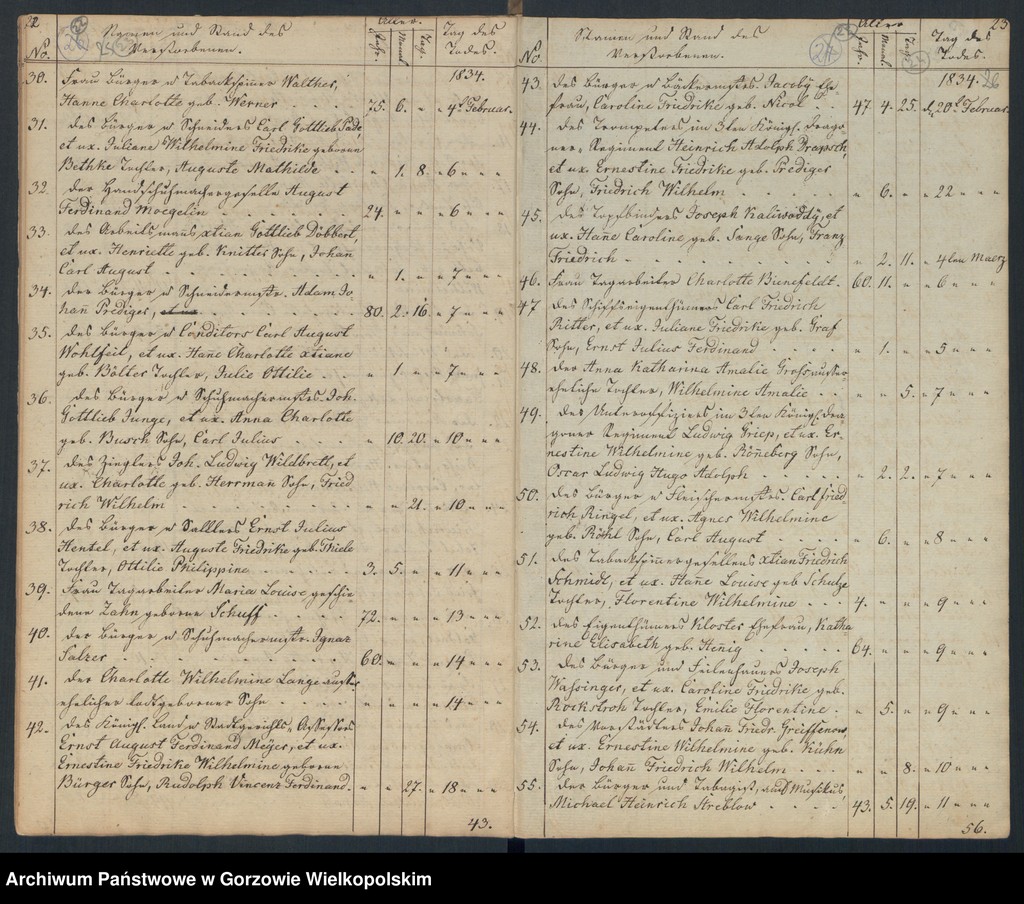 22
Namen und Stand des
Verstorbenen.
No.
Alter.
Jahr. Monat Tag.
Tag des
Todes.
1834.
30. Frau Bürger u Tabackspinner Walther,
Hanne Charlotte geb. Werner 75. 6. " " 4t Februar.
31. des Bürger u Schneiders Carl Gottlieb Pade
et ux. Juliane Wilhelmine Friedrike geborene
Bethke Tochter, Auguste Mathilde " 1. 8. " 6 " " "
32. der Handschuhmachergeselle August
Ferdinand Moegelin 24. " " " 6 " " "
33. des Arbeitsmanns xtian Gottlieb Döbbert,
et ux. Henriette geb. Knitter Sohn, Johan
Carl August " 1. " " 7 " " "
34. der Bürger u Schneidermstr. Adam Jo
hañ Prediger, 80. 2. 16. " 7 " " "
35. des Bürger u Conditors Carl August
Wohlfeil, et ux. Hañe Charlotte xtiane
geb. Bölter Tochter, Julie Ottilie " 1. " " 7 " " "
36. des Bürger u Schuhmachermstrs. Joh.
Gottlieb Junge, et ux. Anna Charlotte
geb. Busch Sohn, Carl Julius " 10. 20. " 10 " " "
37. des Zieglers Joh. Ludwig Wildbrett, et
ux. Charlotte geb. Herrman Sohn, Fried
rich Wilhelm " " 21. " 10 " " "
38. des Bürger u Sattlers Ernst Julius
Hentel, et ux. Auguste Friedrike geb. Thiele
Tochter, Ottilie Philippine 3. 5. " " 11 " " "
39. Frau Tagarbeiter Maria Louise geschie
dene Zahn geborene Schuff 72. " " " 13 " " "
40. der Bürger u Schuhmachermstr. Ignaz
Salzer 60. " " " 14 " " "
41. der Charlotte Wilhelmine Lange außer
ehelicher todtgeborner Sohn " " " " 14 " " "
42. des Königl. Land u Stadtgerichts-Assessors
Ernst August Ferdinand Meyer, et ux.
Ernestine Friedrike Wilhelmine geborene
Bürger Sohn, Rudolph Vincenz Ferdinand. " " 27. " 18 " " "
43.
23
Namen und Stand des
Verstorbenen.
No.
Alter
Jahr. Monat Tag.
Tag des
Todes.
1834.
43. des Bürger u Bäckermstrs. Jacoby Ehe
frau, Caroline Friedrike geb. Nicol 47. 4. 25. d. 20t Februar.
44. des Trompeters im 3ten Königl. Drago
ner-Regiment Heinrich Adolph
et ux. Ernestine Friedrike geb. Prediger
Sohn, Friedrich Wilhelm " 6. " " 22 " " "
45. des Topfbinders Joseph Kaliwoddy, et
ux. Hañe Caroline geb. Lange Sohn, Franz
Friedrich " 2. 11. " 4ten Maerz
46. Frau Tagarbeiter Charlotte Bienefeldt. 60. 11. " " 6 " "
47. des Schiffseigenthümers Carl Friedrich
Ritter, et ux. Juliane Friedrike geb. Graf
Sohn, Ernst Julius Ferdinand " 1. " " 5 " " "
48. der Anna Katharina Amalie Groß außer
eheliche Tochter, Wilhelmine Amalie " " 5. " 7 " " "
49. des Unteroffiziers im 3ten Königl. Dra
goner Regiment Ludwig Griep, et ux. Er
nestine Wilhelmine geb. Röneberg Sohn,
Oscar Ludwig Hugo Adolph " 2. 2. " 7 " " "
50. des Bürger u Fleischermstrs. Carl Fried
rich Ringel, et ux. Agnes Wilhelmine
geb. Röhl Sohn, Carl August " 6. " " 8 " " "
51. des Tabackspinnergesellens xtian Friedrich
Schmidt, et ux. Hañe Louise geb Schulze
Tochter, Florentine Wilhelmine 4. " " " 9 " " "
52. des Eigenthümers Kloster Ehefrau, Katha
rine Elisabeth geb. Henig 64. " " " 9 " " "
53. des Bürger und Feilenhauers Joseph
Wassinger, et ux. Caroline Friedrike geb.
Rockstroh Tochter, Emilie Florentine " 5. " " 9 " " "
54. des Vorstädters Johañ Friedr. Greiffenow,
et ux. Ernestine Wilhelmine geb. Kühn
Sohn, Johañ Friedrich Wilhelm " " 8. " 10 " " "
55. der Bürger und Tabagist, auch Musikus
Michael Heinrich Streblow 43. 5. 19. " 11 " " "
56.
Archiwum Państwowe w Gorzowie Wielkopolskim